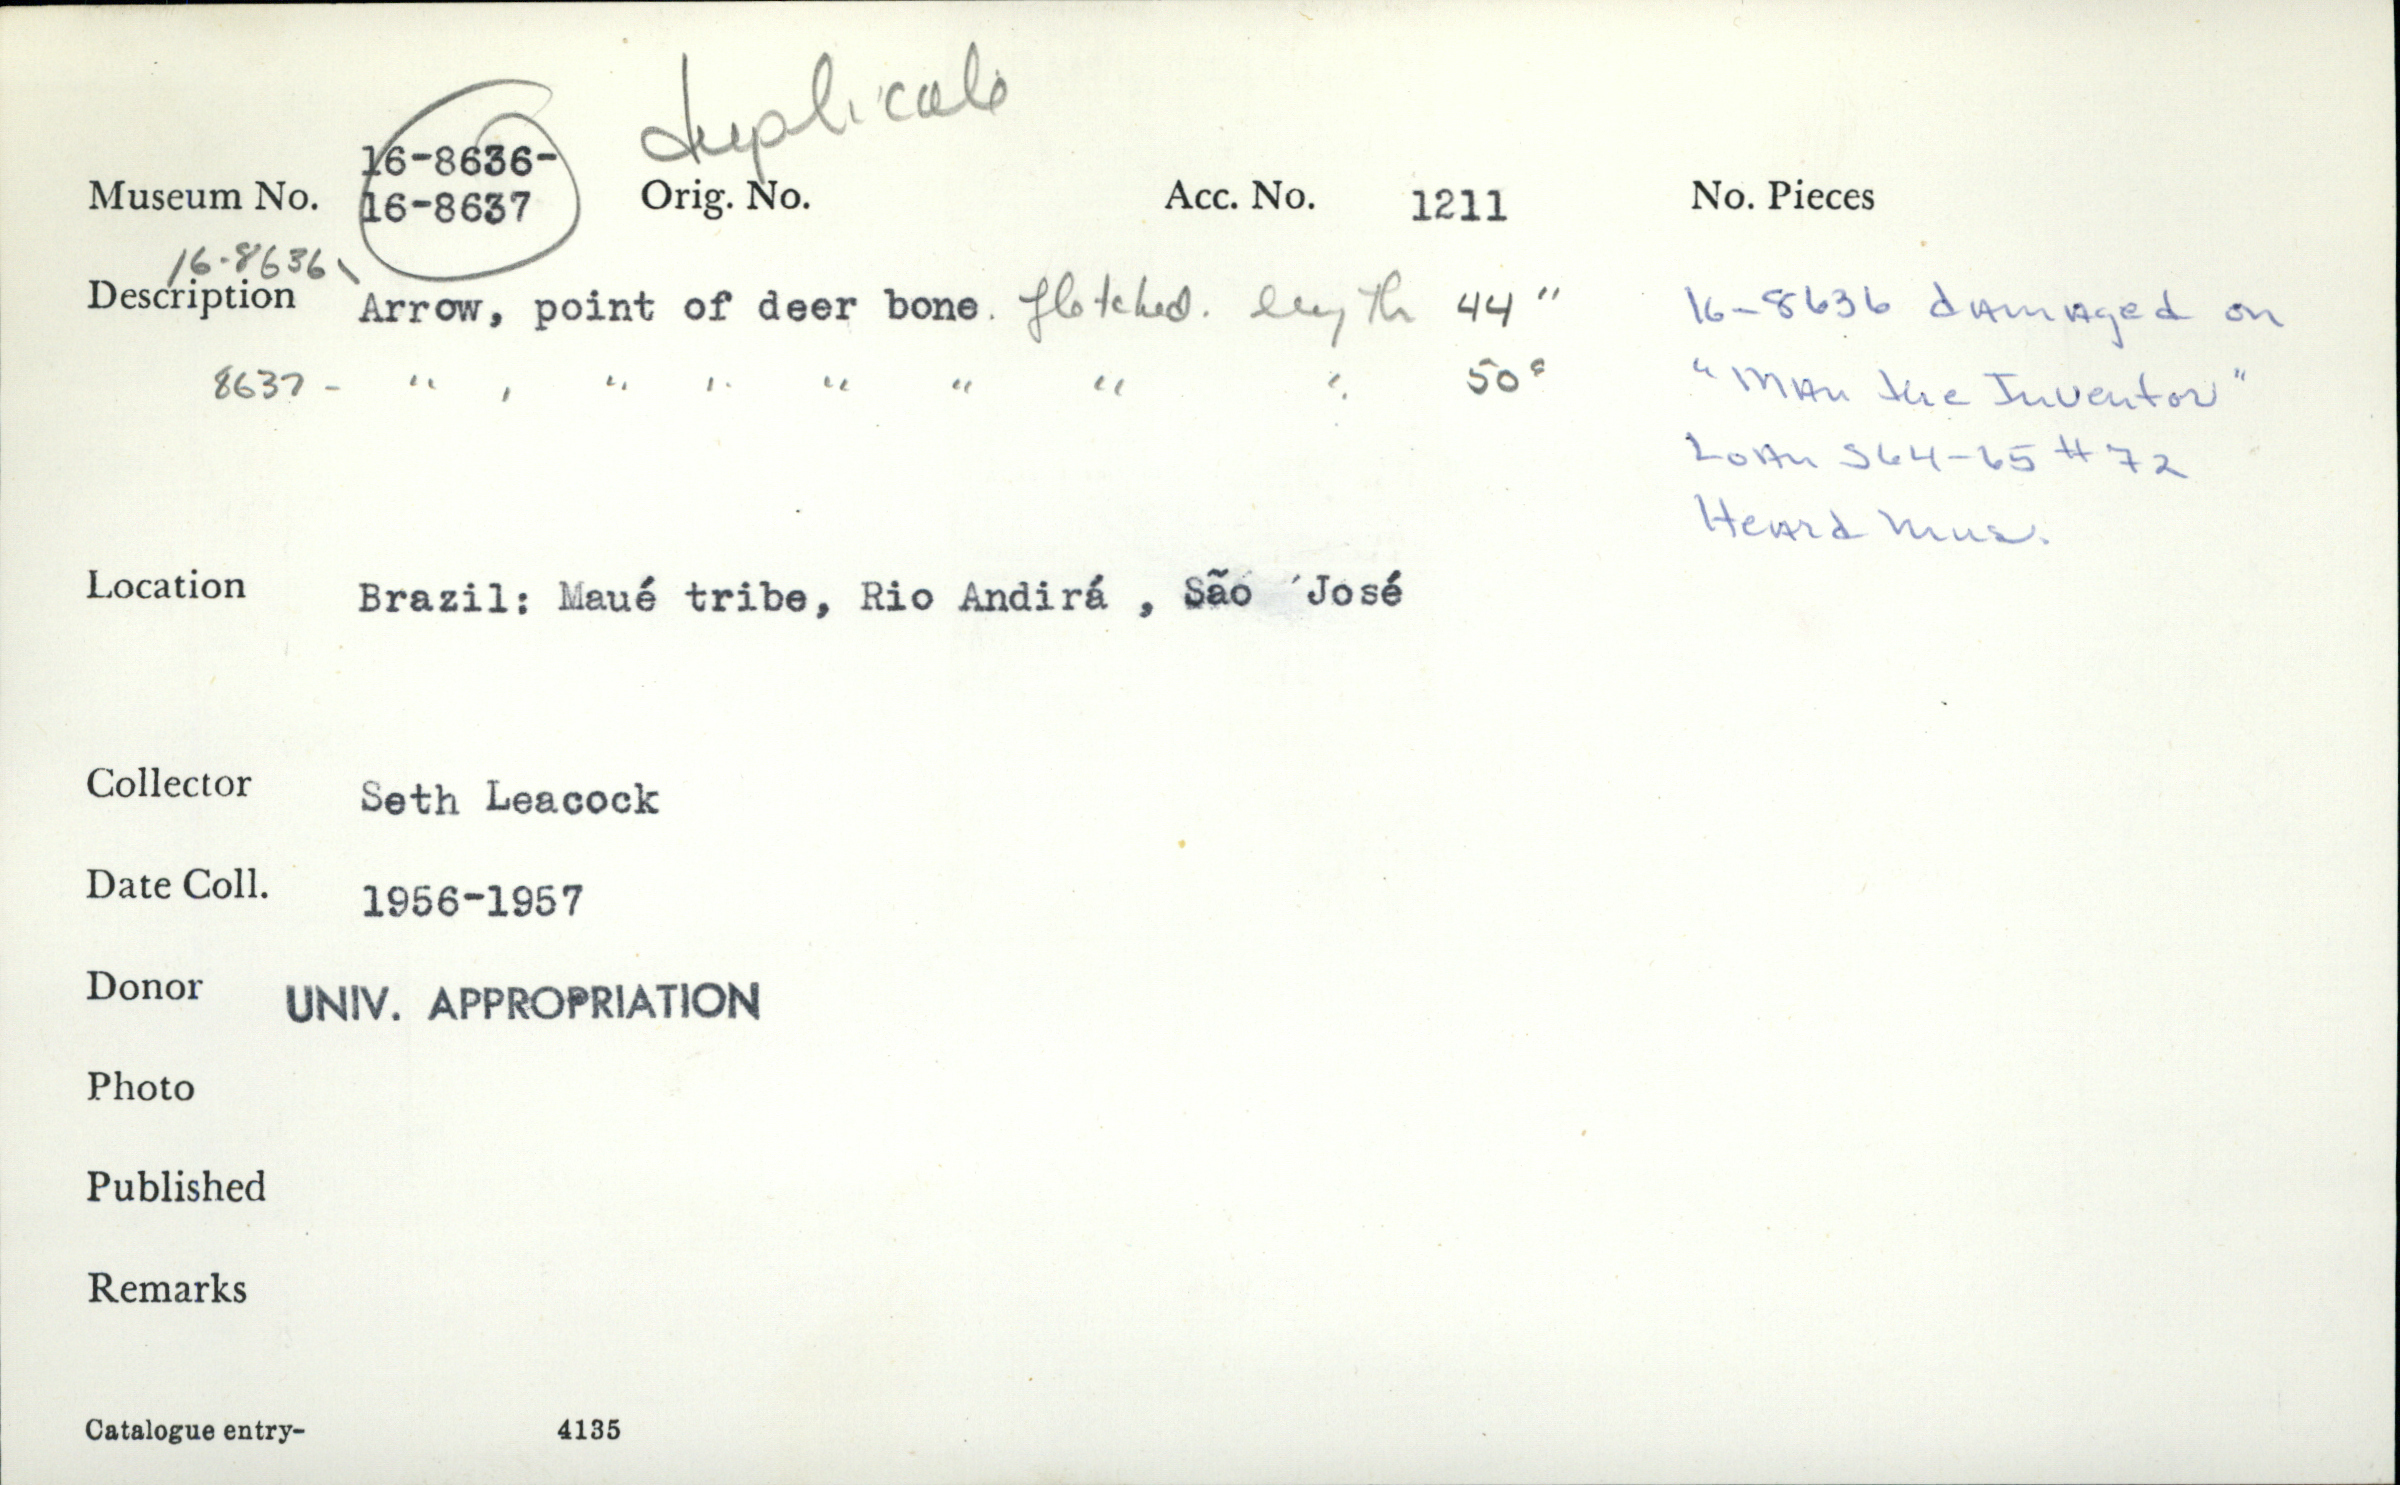 duplicate
16-8636-
Museum No. 16-8637 Orig. No. Acc. No. 1211 No. Pieces
16-8636
Description Arrow, point of deer bone. fletched. length 44"
8637 - " , " " " " " " 50"
16-8636 damaged on
"Man the Inventor"
Loan S64-65 #72
Heard Mus.
Location Brazil: Maué tribe, Rio Andirá , São José
Collector Seth Leacock
Date Coll. 1956-1957
Donor UNIV. APPROPRIATION
Photo
Published
Remarks
Catalogue entry- 4135